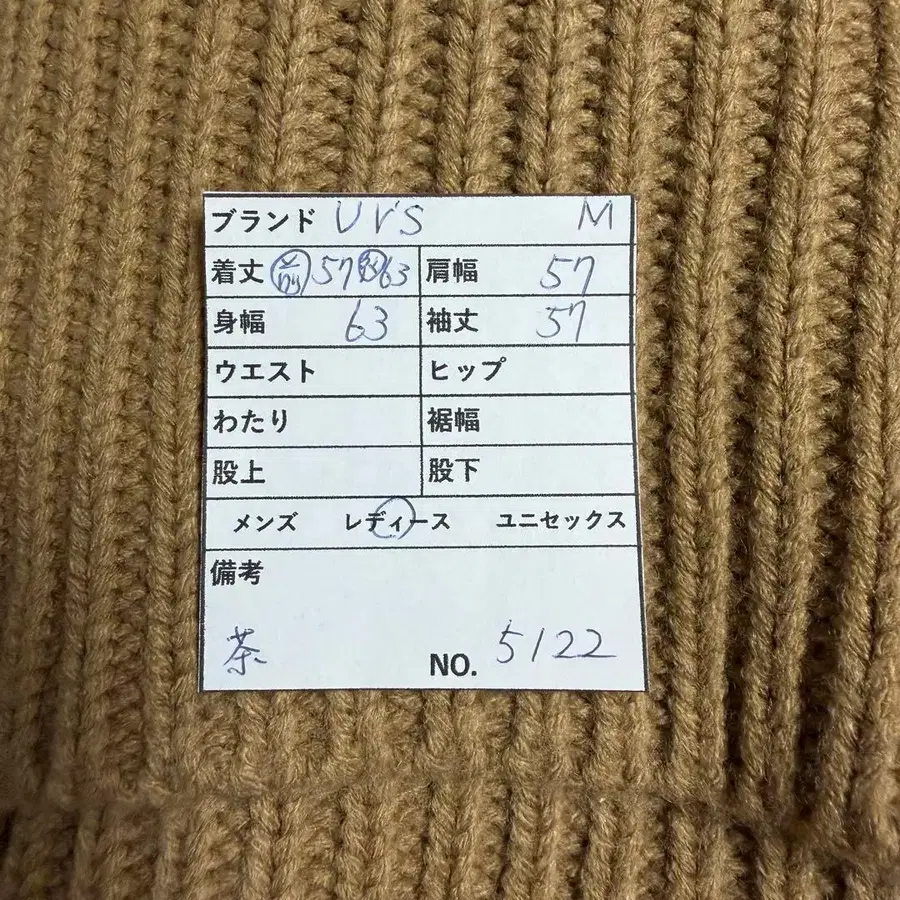 ブランド UrS M
着丈 前57 後63 肩幅 57
身幅 63 袖丈 57
ウエスト ヒップ
わたり 裾幅
股上 股下
メンズ レディース ユニセックス
備考
茶 NO. 5122